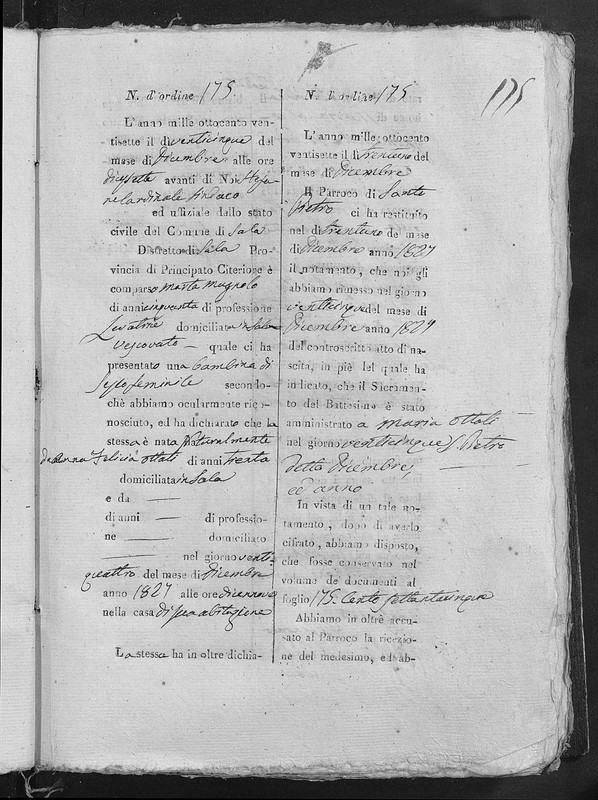 175
N. d'ordine 175
L'anno mille ottocento ven-
tisette il dì venticinque del
mese di Dicembre alle ore
diecisette avanti di Noi Stefa-
no Cardinale Sindaco
ed uffiziale dello stato
civile del Comune di Sala
Distretto di Sala Pro-
vincia di Principato Citeriore è
comparso Marta Mugnolo
di anni cinquanta di professione
Levatrice domiciliata in Sala
vescovato — quale ci ha
presentato una bambina di
sesso feminile secondo-
chè abbiamo ocularmente rico-
nosciuto, ed ha dichiarato che la
stessa è nata Naturalmente
da Anna Felicia Ottati di anni trenta
domiciliata in Sala
e da —
di anni — di professio-
ne — domiciliato
— nel giorno venti-
quattro del mese di Dicembre
anno 1827 alle ore diecinnove
nella casa di sua abitazione
La stessa ha in oltre dichia-
N. d'ordine 175
L'anno mille ottocento
ventisette il dì trentuno del
mese di Dicembre
Il Parroco di Santo
Pietro ci ha restituito
nel dì trentuno de' mese
di Dicembre anno 1827
il notamento, che noi gli
abbiamo rimesso nel giorno
venticinque del mese di
Dicembre anno 1827
del controscritto atto di na-
scita, in piè del quale ha
indicato, che il Sacramen-
to del Battesimo è stato
amministrato a Maria Ottati
nel giorno venticinque S. Pietro
detto Dicembre,
ed anno
In vista di un tale no-
tamento, dopo di averlo
cifrato, abbiamo disposto,
che fosse conservato nel
volume de' documenti al
foglio 175. Cento settantacinque
Abbiamo in oltre accu-
sato al Parroco la ricezio-
ne del medesimo, ed ab-